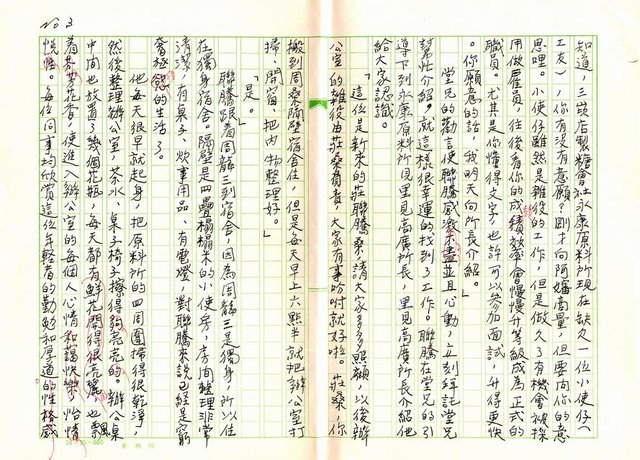 No 3
知道，三崁店製糖會社永康原料所現在缺欠一位小使仔（
工友），你有沒有意願。剛才向阿嬸商量，但要問你的意
思哩。小使仔雖然是雜役的工作，但是做久了有機會被採
用做雇員，往後看你的成績效率會慢慢升等級成為正式的
職員。尤其是你懂得文字，也許可以參加面試，升得更快
。你願意的話，我明天向所長介紹。」
堂兄的勸言使聯騰感激不盡並且心動，立刻拜託堂兄
幫忙介紹。就這樣很幸運的找到了工作。聯騰在堂兄的引
導下到永康原料所見里見高廣所長，里見高廣所長介紹他
給大家認識。
「這位是新來的莊聯騰桑，請大家多多照顧，以後辦
公室的雜役由莊桑負責，大家有事吩咐就好啦。莊桑，你
搬到周桑隔壁宿舍住，但是每天早上六點半就把辦公室打
掃、開窗，把內物整理好。」
「是。」
聯騰跟着周龍三到宿舍，因為周龍三是獨身，所以住
在獨身宿舍。隔壁是四疊榻榻米的小使房，房間整理非常
清潔，有桌子、炊事用品、有電燈，對聯騰來說已經是窮
奢極慾的生活了。
他每天很早就起身，把原料所的四周圍掃得很乾淨，
然後整理辦公室，茶水、桌子椅子擦得夠亮亮的。辦公桌
中間也放置了幾個花瓶，每天都有鮮花開得很亮麗，也飄
着芬芳花香，使進入辦公室的每個人心情和藹快樂，怡情
悅性。每位同事均欣賞這位年輕者的勤勉和厚道的性格感